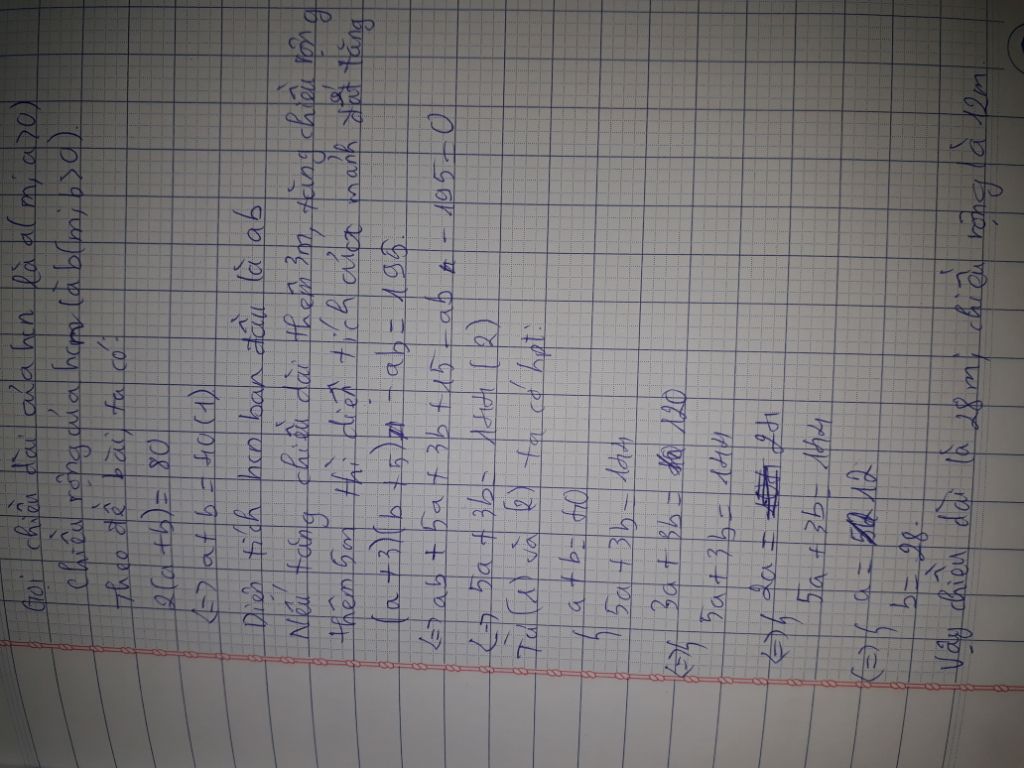 Gọi chiều dài của hcn là a(m; a>0)
chiều rộng của hcn là b(m; b>0).
theo đề bài, ta có:
2(a+b)=80
<=> a+b=40(1)
Diện tích hcn ban đầu là ab
Nếu tăng chiều dài thêm 3m, tăng chiều rộng
thêm 5m thì diện tích của mảnh đất tăng
(a+3)(b+5) - ab = 195.
<=> ab+5a+3b+15-ab - 195=0
<=> 5a+3b= 144 (2)
Từ (1) và (2) ta có hpt:
{ a+b=40
5a+3b=144
<=> { 3a+3b= 120
5a+3b=144
<=> { 2a = 24
5a+3b=144
<=> { a= 12
b=28.
Vậy chiều dài là 28m, chiều rộng là 12m.